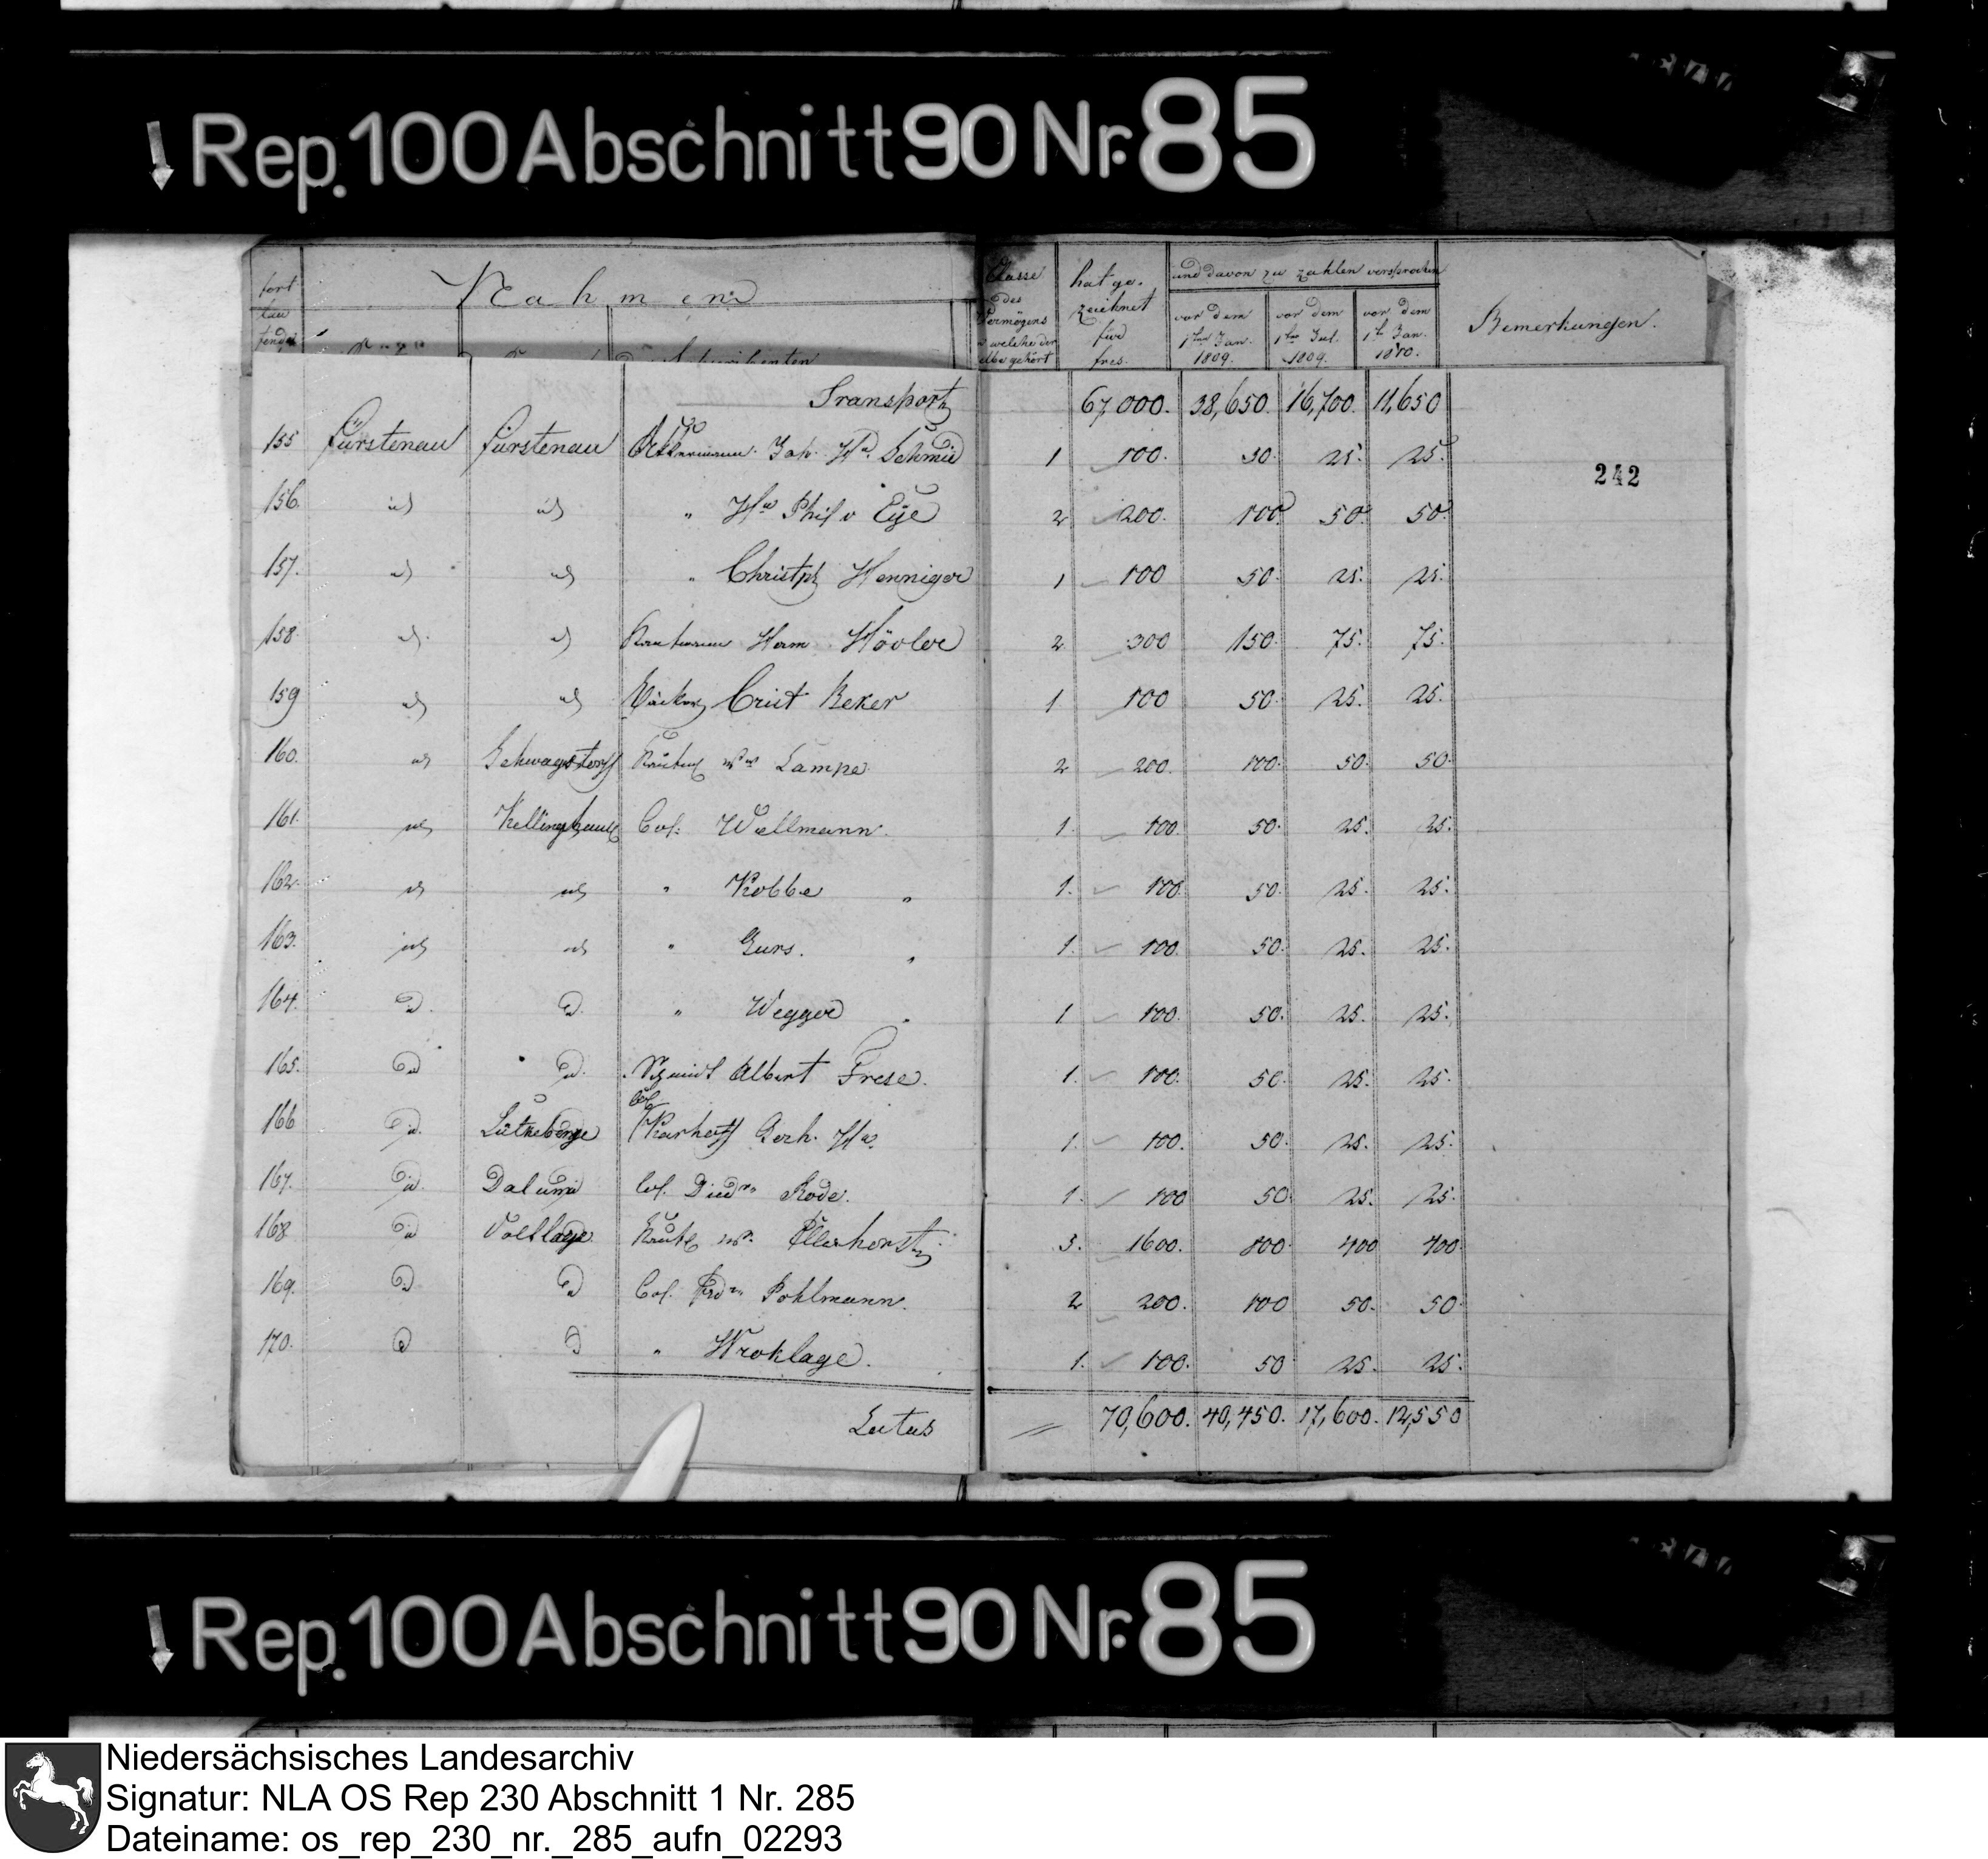 Rep. 100 Abschnitt 90 Nr. 85
fort lau fende
Nahmen
Classe des Vermögens welche der selbe gehört
hat ge. zeichnet für frcs.
und davon zu zahlen versprochen
vor dem 1ten Jan. 1809.
vor dem 1ten Jul. 1809.
vor dem 1ten Jan. 1810.
Bemerkungen.
Transport 67,000. 38,650. 16,700. 11,650
155 Fürstenau Fürstenau Joh. Schmid 1 100. 50. 25. 25.
242
156. id id " Phil v Eye 2 200. 100. 50. 50.
157. id id " Christph Henniger 1 100 50. 25. 25.
158. id id Herm Hövler 2 300 150. 75. 75.
159 id id Crist Beker 1 100 50. 25. 25.
160. id Schwagstorf Lampe 2 200. 100. 50. 50.
161. id Kellinghaus Col: Wellmann. 1. 100. 50. 25. 25.
162. id id " Kobbe " 1. 100. 50. 25. 25.
163. id id " Gurs. " 1. 100. 50. 25. 25.
164. id. id. " Wegger " 1 100. 50. 25. 25.
165. id id. Albert Frese. 1. 100. 50. 25. 25.
166 id. Lütkeberge Col Gerh. 1. 100. 50. 25. 25.
167. id. Dalum Col. Rode. 1. 100 50 25. 25.
168. id Voltlage Ellerhorst 3. 1600. 800. 400 400.
169. id id Col. Pohlmann. 2 200. 100 50. 50.
170. id id " Wroklage. 1. 100. 50 25. 25.
Latus 70,600. 40,450. 17,600. 12,550
Rep. 100 Abschnitt 90 Nr. 85
Niedersächsisches Landesarchiv
Signatur: NLA OS Rep 230 Abschnitt 1 Nr. 285
Dateiname: os_rep_230_nr._285_aufn_02293